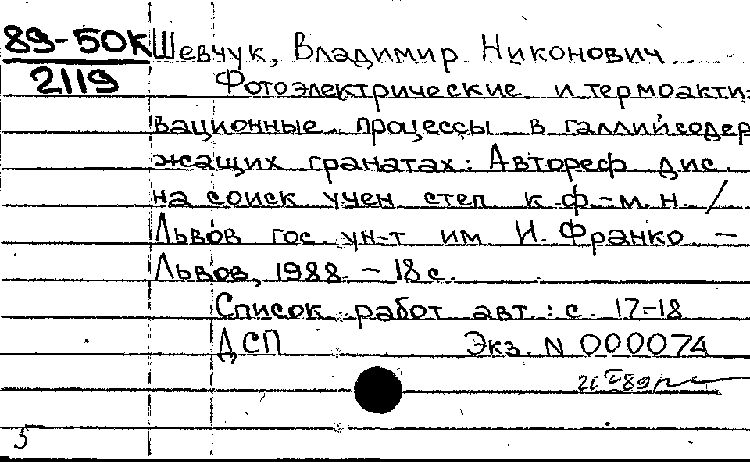 89-50К Шевчук, Владимир Никонович
2119 Фотоэлектрические и термоакти-
вационные процессы в галлийсодер
жащих гранатах: Автореф дис.
на соиск учен степ к. ф.-м. н. /
Львов гос ун-т им И. Франко. –
Львов, 1988. – 18 с.
Список работ авт.: с. 17-18
ДСП Экз. N 000074
5